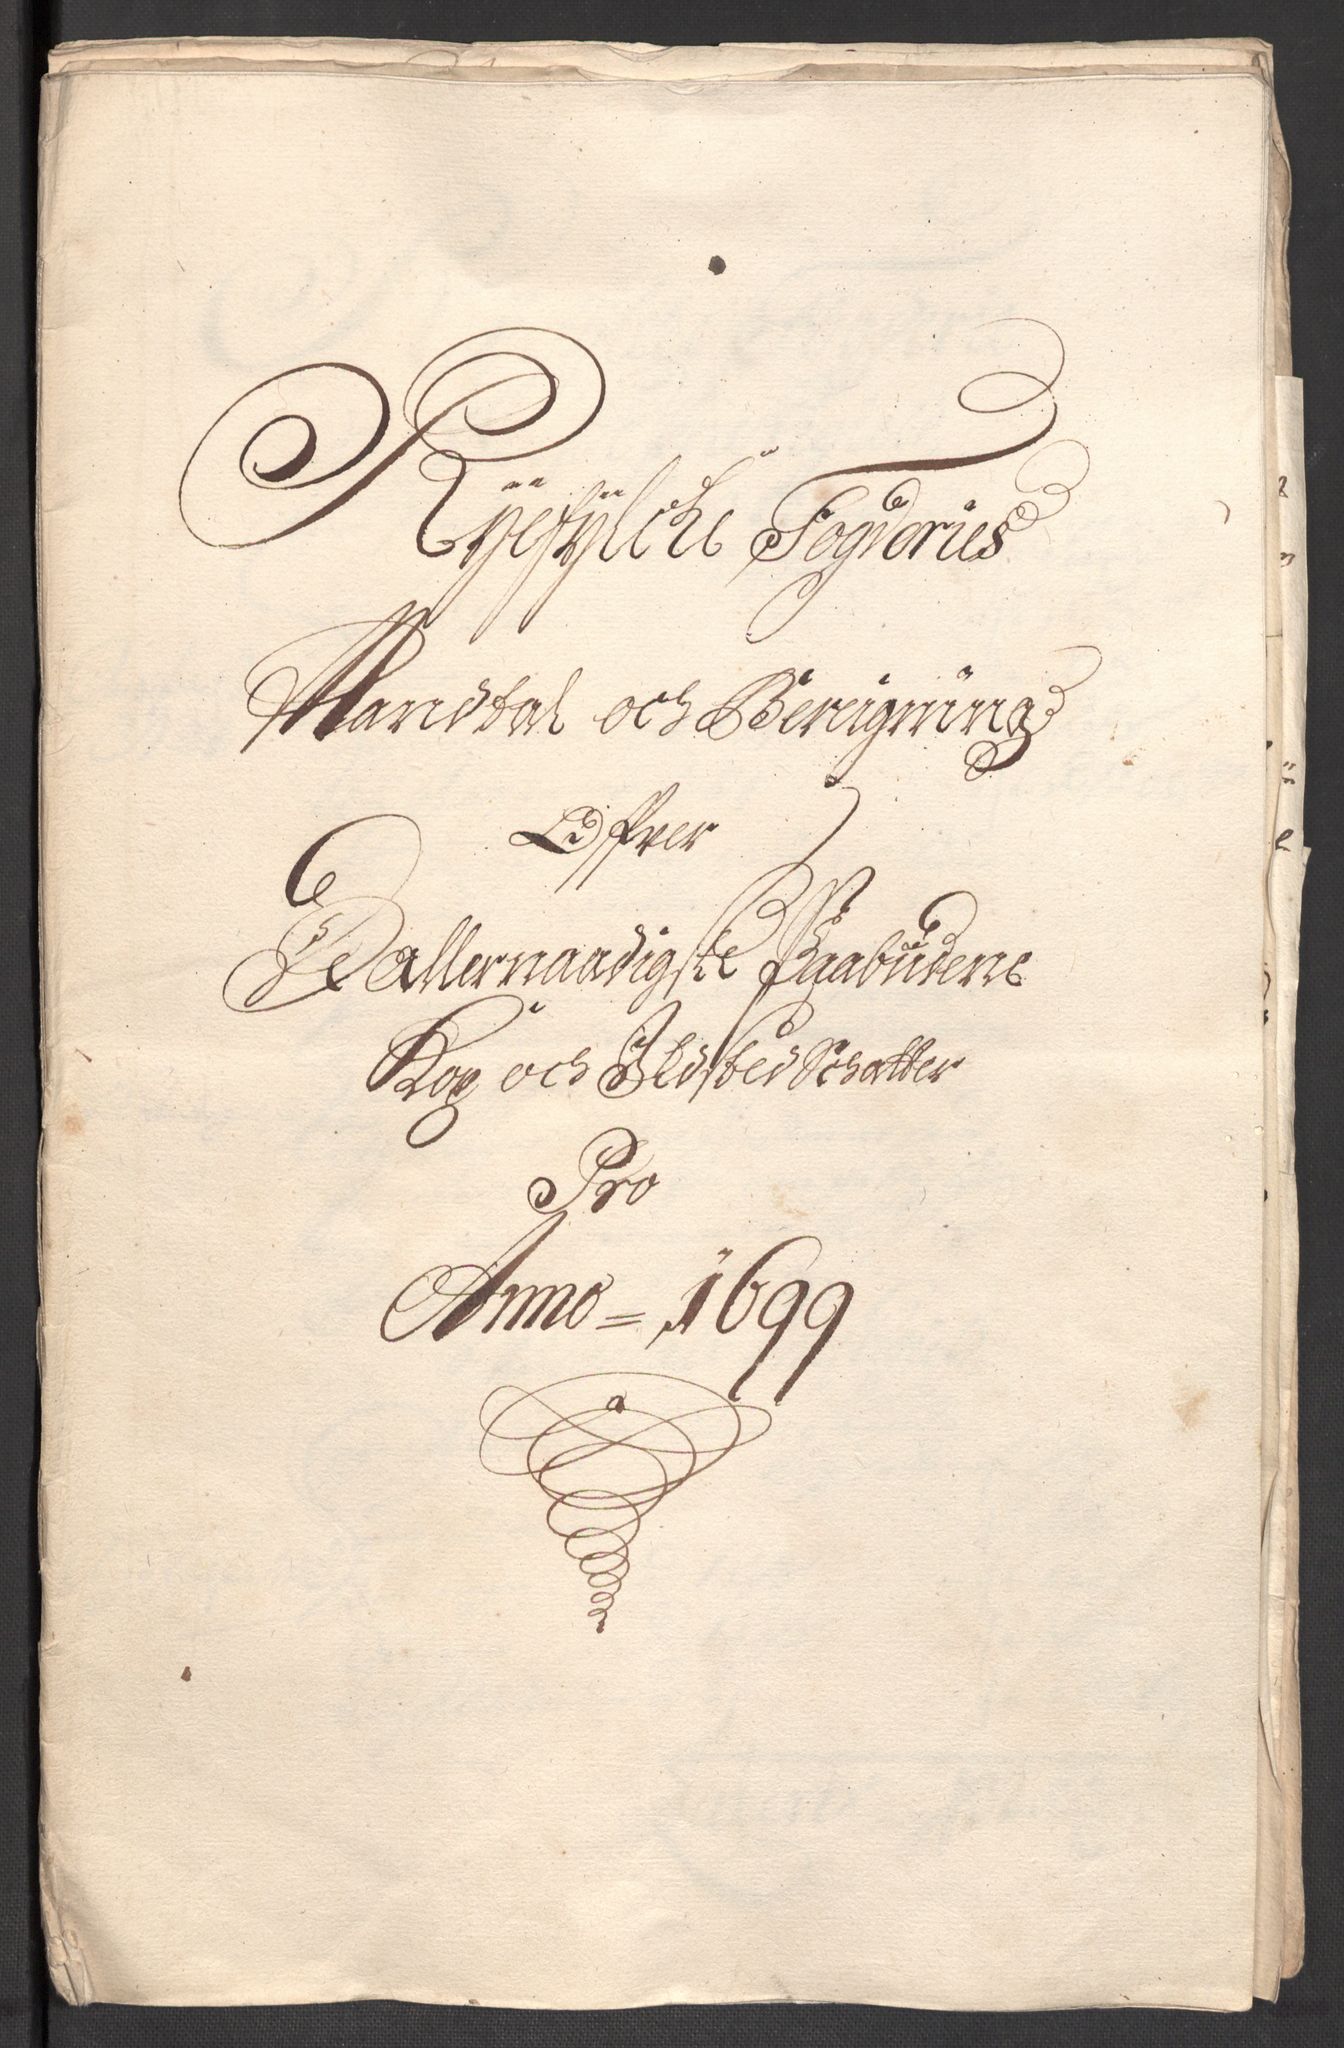 Ryefylcke Fogderies
Mandtal och Bereigning
Offver
De allernaadigste Paabudene
Kop och Ildsted Schatter
Pro
Anno = 1699